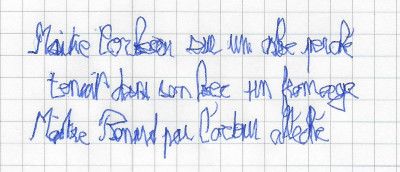 Maitre Corbeau sur un arbre perché
tenait dans son bec un fromage
Maitre Renard par l'odeur alléché